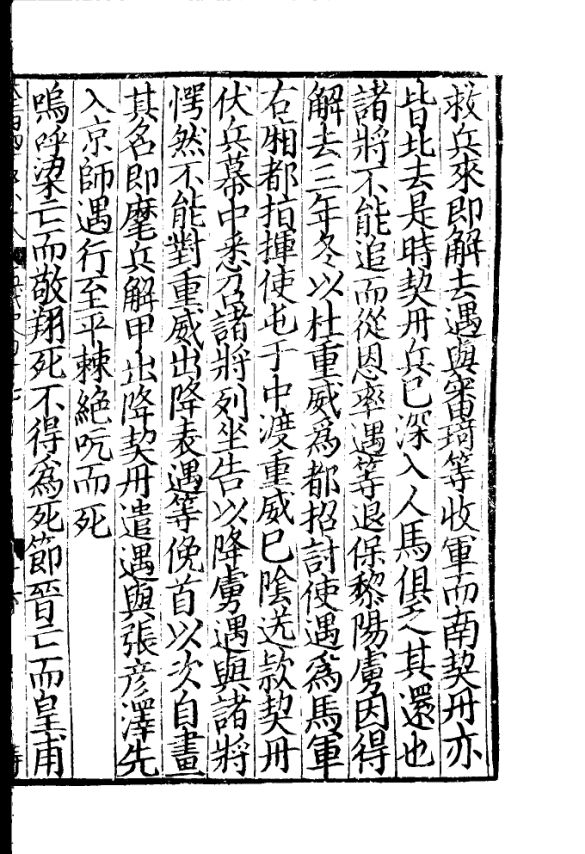 救兵來即解去遇與審琦等收軍而南契丹亦
皆北去是時契丹兵已深入人馬俱乏其還也
諸將不能追而從恩率遇等退保黎陽虜因得
解去三年冬以杜重威爲都招討使遇爲馬軍
右廂都指揮使屯于中渡重威已陰送款契丹
伏兵幕中悉召諸將列坐告以降虜遇與諸將
愕然不能對重威出降表遇等俛首以次自畫
其名即麾兵解甲出降契丹遣遇與張彦澤先
入京師遇行至平棘絶吭而死
嗚呼梁亡而敬翔死不得爲死節晉亡而皇甫